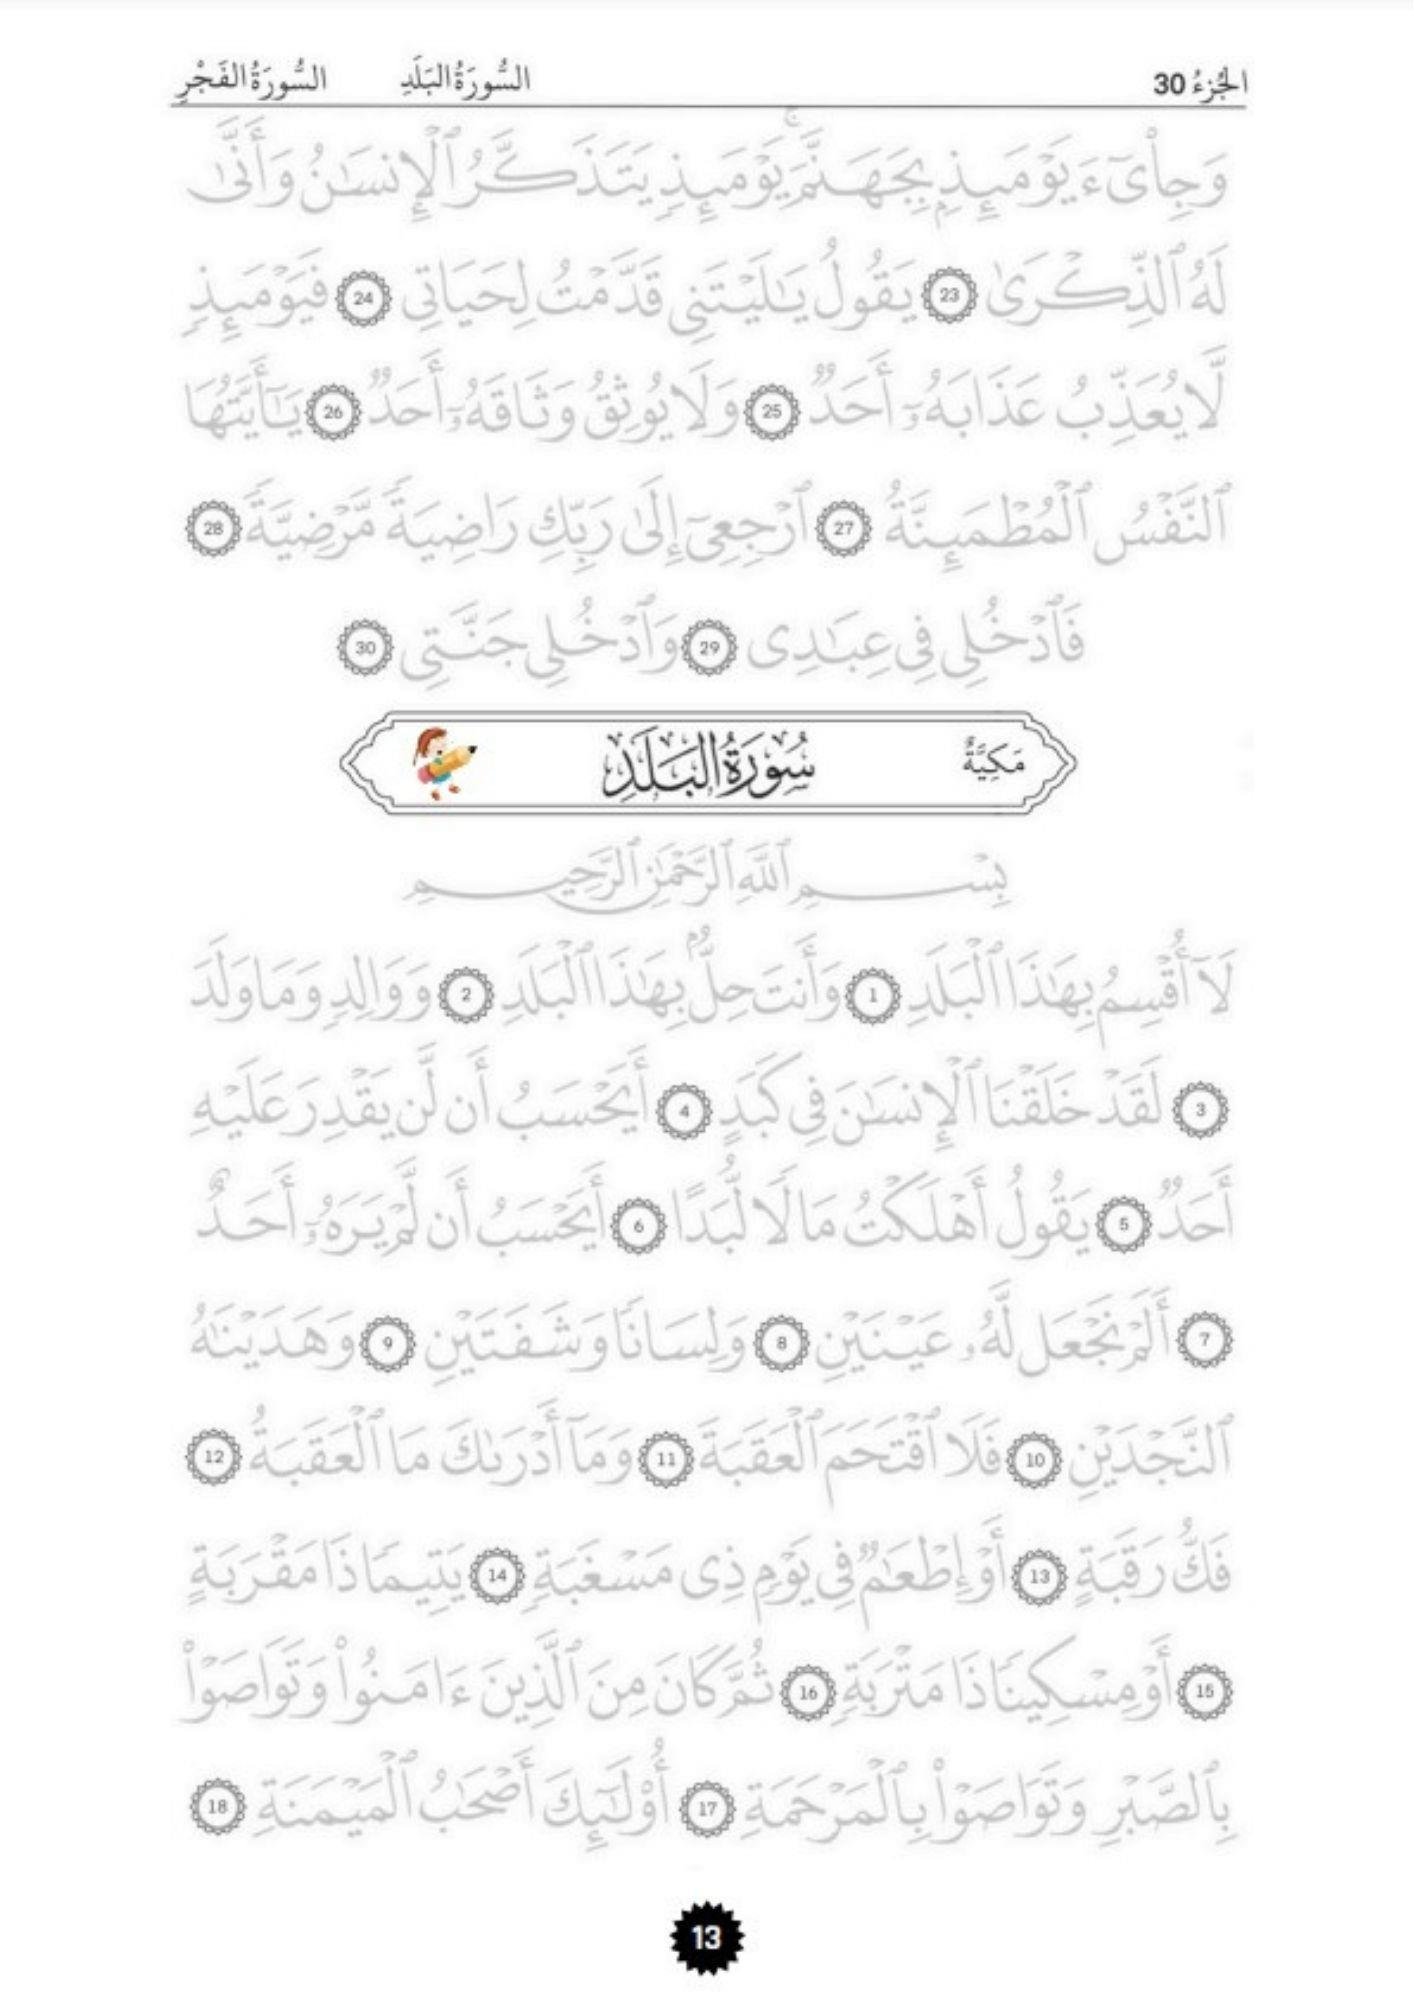 الجُزءُ 30 السُّورَةُ البَلَدِ السُّورَةُ الفَجْرِ
وَجِاْىٓءَ يَوْمَئِذِۭ بِجَهَنَّمَۚ يَوْمَئِذٖ يَتَذَكَّرُ ٱلْإِنسَٰنُ وَأَنَّىٰ
لَهُ ٱلذِّكْرَىٰ 23 يَقُولُ يَٰلَيْتَنِى قَدَّمْتُ لِحَيَاتِى 24 فَيَوْمَئِذٖ
لَّا يُعَذِّبُ عَذَابَهُۥٓ أَحَدٞ 25 وَلَا يُوثِقُ وَثَاقَهُۥٓ أَحَدٞ 26 يَٰٓأَيَّتُهَا
ٱلنَّفْسُ ٱلْمُطْمَئِنَّةُ 27 ٱرْجِعِىٓ إِلَىٰ رَبِّكِ رَاضِيَةٗ مَّرْضِيَّةٗ 28
فَٱدْخُلِى فِى عِبَٰدِى 29 وَٱدْخُلِى جَنَّتِى 30
مَكِيَّةٌ سُورَةُ البَلَدِ
بِسْمِ ٱللَّهِ ٱلرَّحْمَٰنِ ٱلرَّحِيمِ
لَآ أُقْسِمُ بِهَٰذَا ٱلْبَلَدِ 1 وَأَنتَ حِلُّۢ بِهَٰذَا ٱلْبَلَدِ 2 وَوَالِدٖ وَمَا وَلَدَ
3 لَقَدْ خَلَقْنَا ٱلْإِنسَٰنَ فِى كَبَدٍ 4 أَيَحْسَبُ أَن لَّن يَقْدِرَ عَلَيْهِ
أَحَدٞ 5 يَقُولُ أَهْلَكْتُ مَالٗا لُّبَدًا 6 أَيَحْسَبُ أَن لَّمْ يَرَهُۥٓ أَحَدٌ
7 أَلَمْ نَجْعَل لَّهُۥ عَيْنَيْنِ 8 وَلِسَانٗا وَشَفَتَيْنِ 9 وَهَدَيْنَٰهُ
ٱلنَّجْدَيْنِ 10 فَلَا ٱقْتَحَمَ ٱلْعَقَبَةَ 11 وَمَآ أَدْرَىٰكَ مَا ٱلْعَقَبَةُ 12
فَكُّ رَقَبَةٍ 13 أَوْ إِطْعَٰمٞ فِى يَوْمٖ ذِى مَسْغَبَةٖ 14 يَتِيمٗا ذَا مَقْرَبَةٍ
15 أَوْ مِسْكِينٗا ذَا مَتْرَبَةٖ 16 ثُمَّ كَانَ مِنَ ٱلَّذِينَ ءَامَنُوا۟ وَتَوَاصَوْا۟
بِٱلصَّبْرِ وَتَوَاصَوْا۟ بِٱلْمَرْحَمَةِ 17 أُو۟لَٰٓئِكَ أَصْحَٰبُ ٱلْمَيْمَنَةِ 18
13